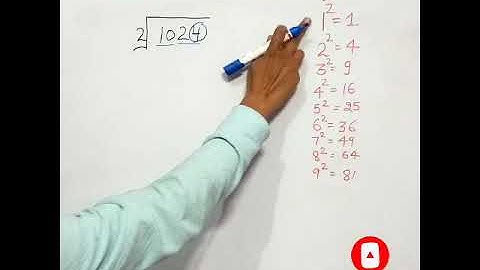 2√1024
1² = 1
2² = 4
3² = 9
4² = 16
5² = 25
6² = 36
7² = 49
8² = 64
9² = 81